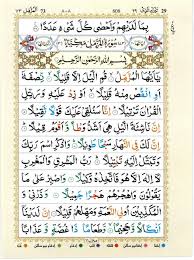 المزمل ٧٣ تبرك الذي ٢٩
بِمَا لَدَيْهِمْ وَاَحْصٰى كُلَّ شَيْءٍ عَدَدًا
سُوْرَةُ الْمُزَّمِّلِ مَكِّيَّةٌ
بِسْمِ اللّٰهِ الرَّحْمٰنِ الرَّحِيْمِ
يٰٓاَيُّهَا الْمُزَّمِّلُ قُمِ الَّيْلَ اِلَّا قَلِيْلًا نِّصْفَهٗٓ
اَوِ انْقُصْ مِنْهُ قَلِيْلًا اَوْ زِدْ عَلَيْهِ وَرَتِّلِ الْقُرْاٰنَ
تَرْتِيْلًا اِنَّا سَنُلْقِيْ عَلَيْكَ قَوْلًا ثَقِيْلًا اِنَّ نَاشِئَةَ
الَّيْلِ هِيَ اَشَدُّ وَطْـًٔا وَّاَقْوَمُ قِيْلًا اِنَّ لَكَ فِي النَّهَارِ
سَبْحًا طَوِيْلًا وَاذْكُرِ اسْمَ رَبِّكَ وَتَبَتَّلْ اِلَيْهِ تَبْتِيْلًا
رَبُّ الْمَشْرِقِ وَالْمَغْرِبِ لَآ اِلٰهَ اِلَّا هُوَ فَاتَّخِذْهُ وَكِيْلًا وَاصْبِرْ عَلٰى مَا
يَقُوْلُوْنَ وَاهْجُرْهُمْ هَجْرًا جَمِيْلًا وَذَرْنِيْ وَالْمُكَذِّبِيْنَ
اُولِي النَّعْمَةِ وَمَهِّلْهُمْ قَلِيْلًا اِنَّ لَدَيْنَآ
اَنْكَالًا وَّجَحِيْمًا وَّطَعَامًا ذَا غُصَّةٍ وَّعَذَابًا